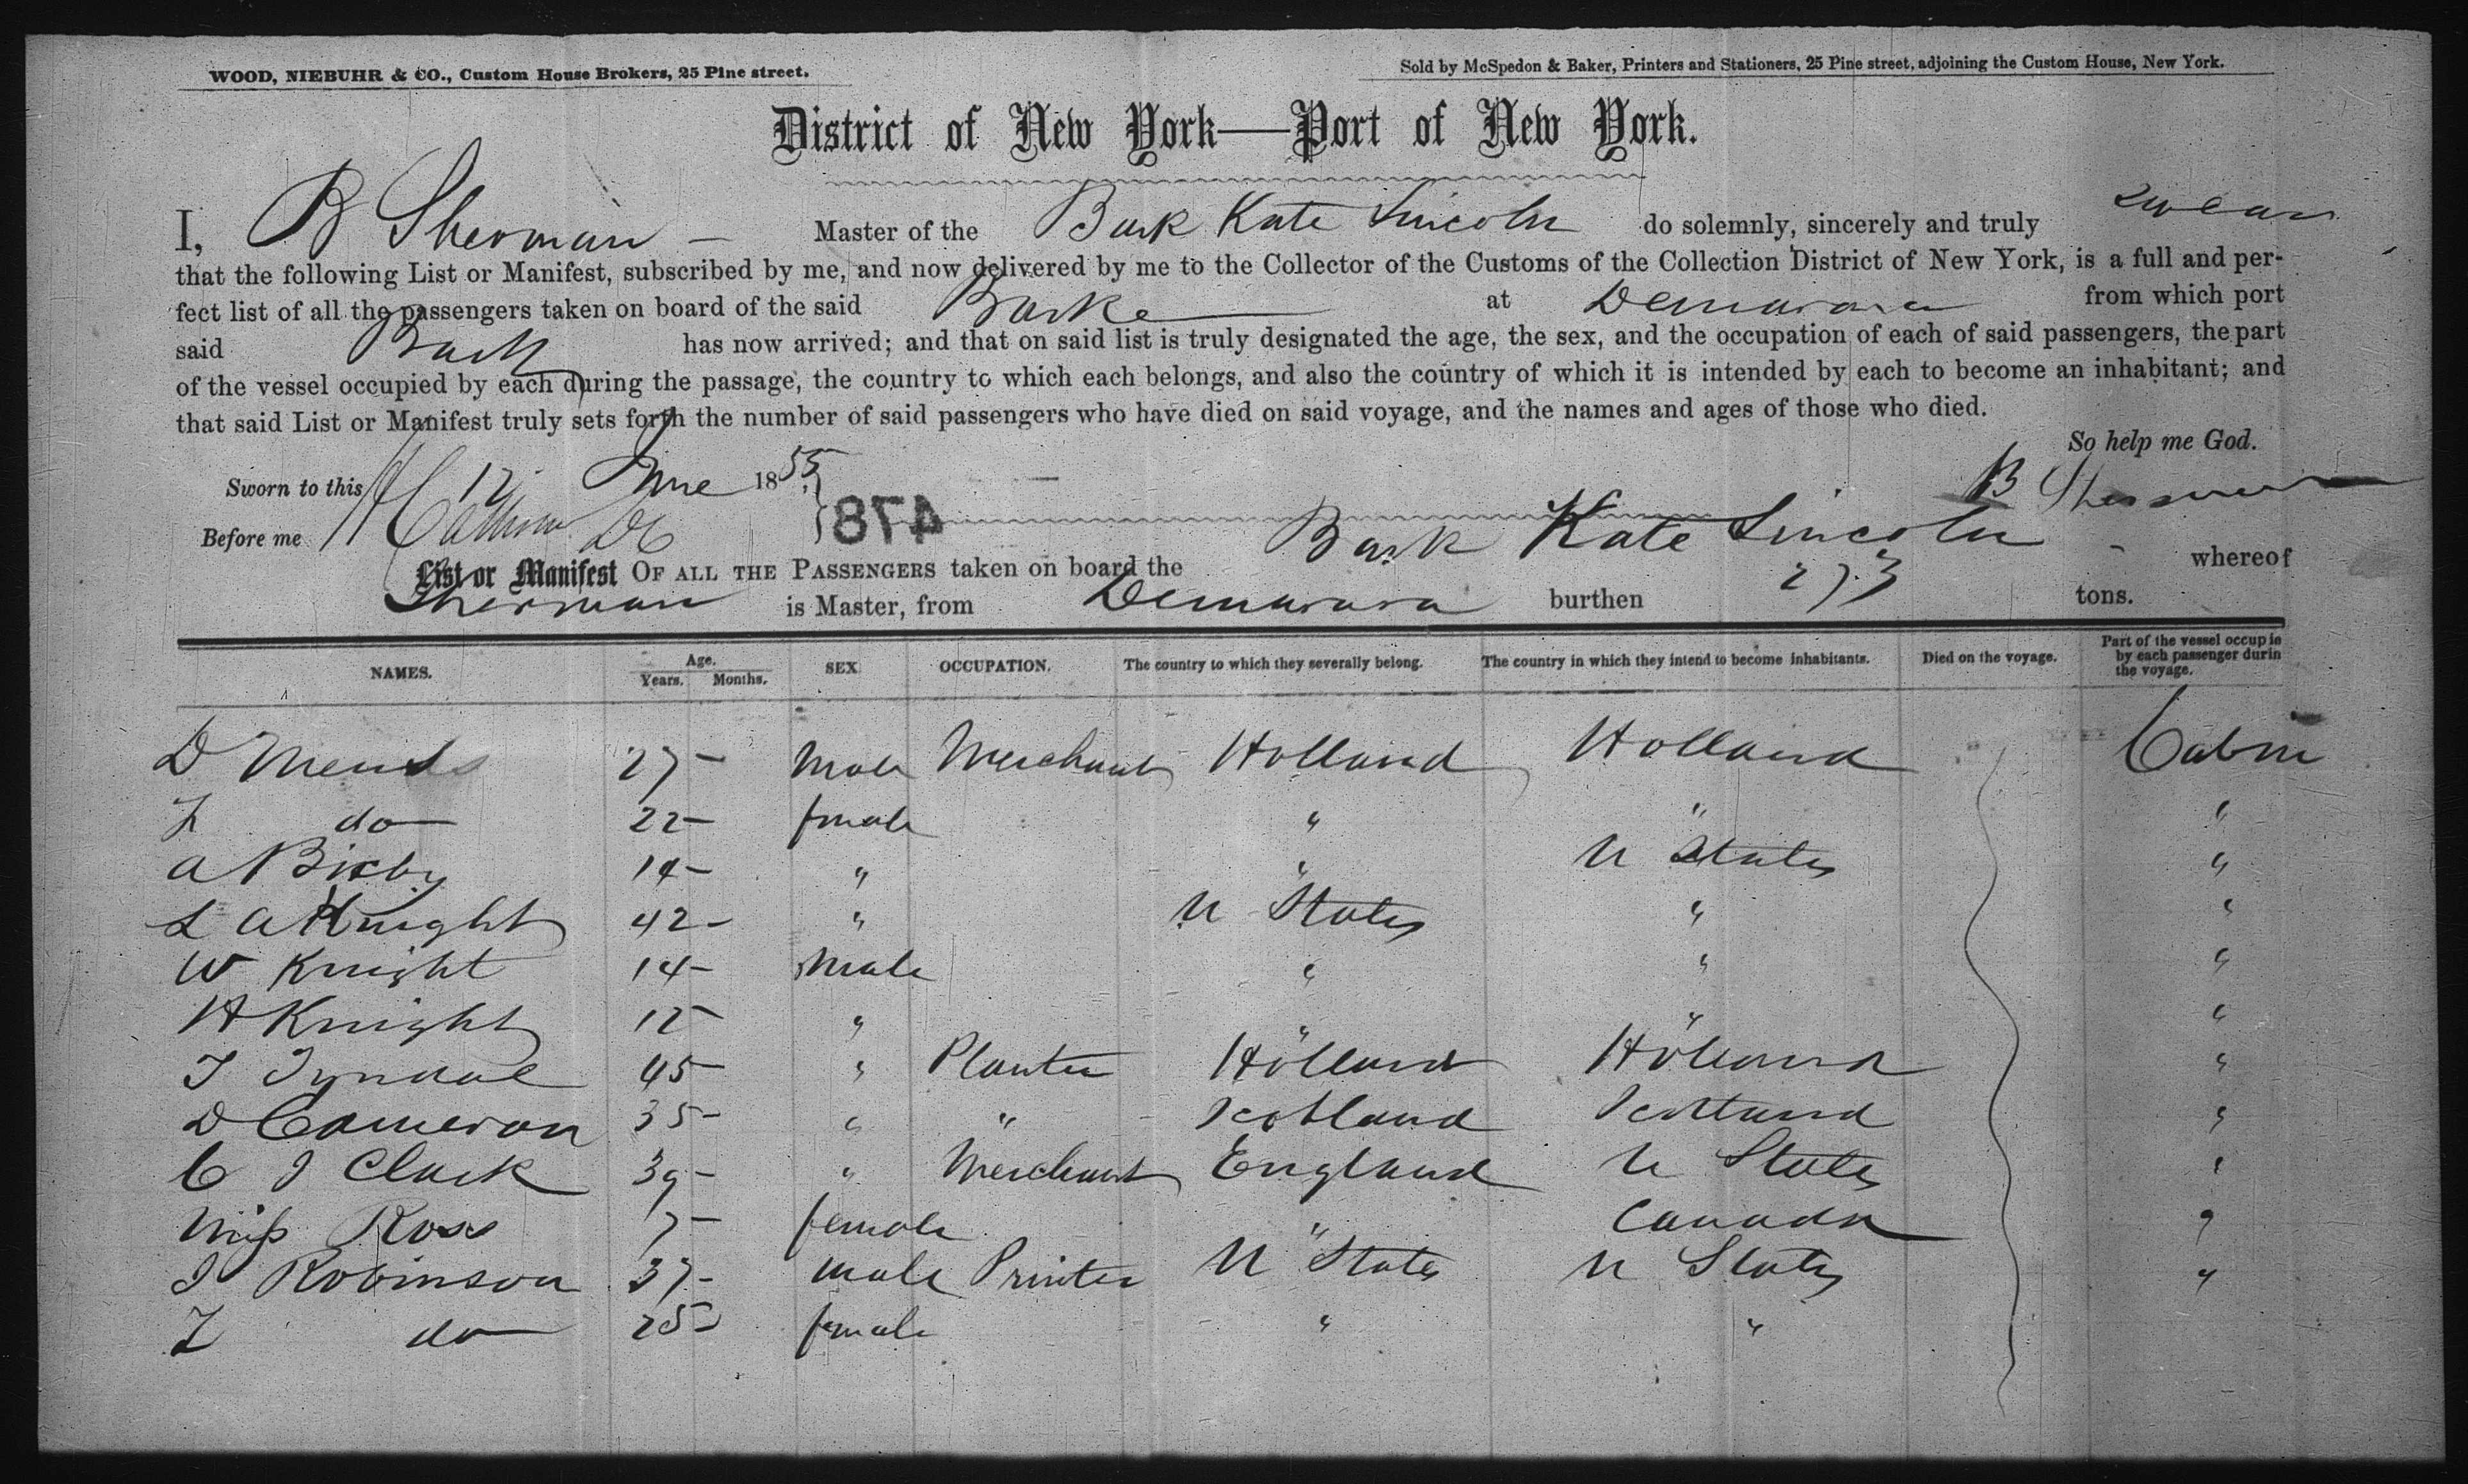 WOOD, NIEBUHR & CO., Custom House Brokers, 25 Pine street.
Sold by McSpedon & Baker, Printers and Stationers, 25 Pine street, adjoining the Custom House, New York.
District of New York—Port of New York.
I, B Sherman — Master of the Bark Kate Lincoln do solemnly, sincerely and truly swear
that the following List or Manifest, subscribed by me, and now delivered by me to the Collector of the Customs of the Collection District of New York, is a full and per-
fect list of all the passengers taken on board of the said Barke at Demarara from which port
said Bark has now arrived; and that on said list is truly designated the age, the sex, and the occupation of each of said passengers, the part
of the vessel occupied by each during the passage, the country to which each belongs, and also the country of which it is intended by each to become an inhabitant; and
that said List or Manifest truly sets forth the number of said passengers who have died on said voyage, and the names and ages of those who died.
So help me God.
Sworn to this 12 June 1855
B Sherman
Before me
478
List or Manifest OF ALL THE PASSENGERS taken on board the Bark Kate Lincoln whereof
Sherman is Master, from Demarara burthen 273 tons.
NAMES. Age. Years. Months. SEX OCCUPATION. The country to which they severally belong. The country in which they intend to become inhabitants. Died on the voyage. Part of the vessel occup ie by each passenger durin the voyage.
D Mends 27 – Male Merchant Holland Holland Cabin
L do 22 – female " " "
A Bixby 14 – " " U States "
L A Knight 42 – " U States " "
W Knight 14 – Male " " "
H Knight 12 – " " " "
T Tyndal 45 – " Planter Holland Holland "
D Cameron 35 – " " Scotland Scotland "
C J Clark 39 – " Merchant England U States "
Miss Ross 7 – female " Canada "
J Robinson 37 – male Printer U States U States "
L do 25 – female " "